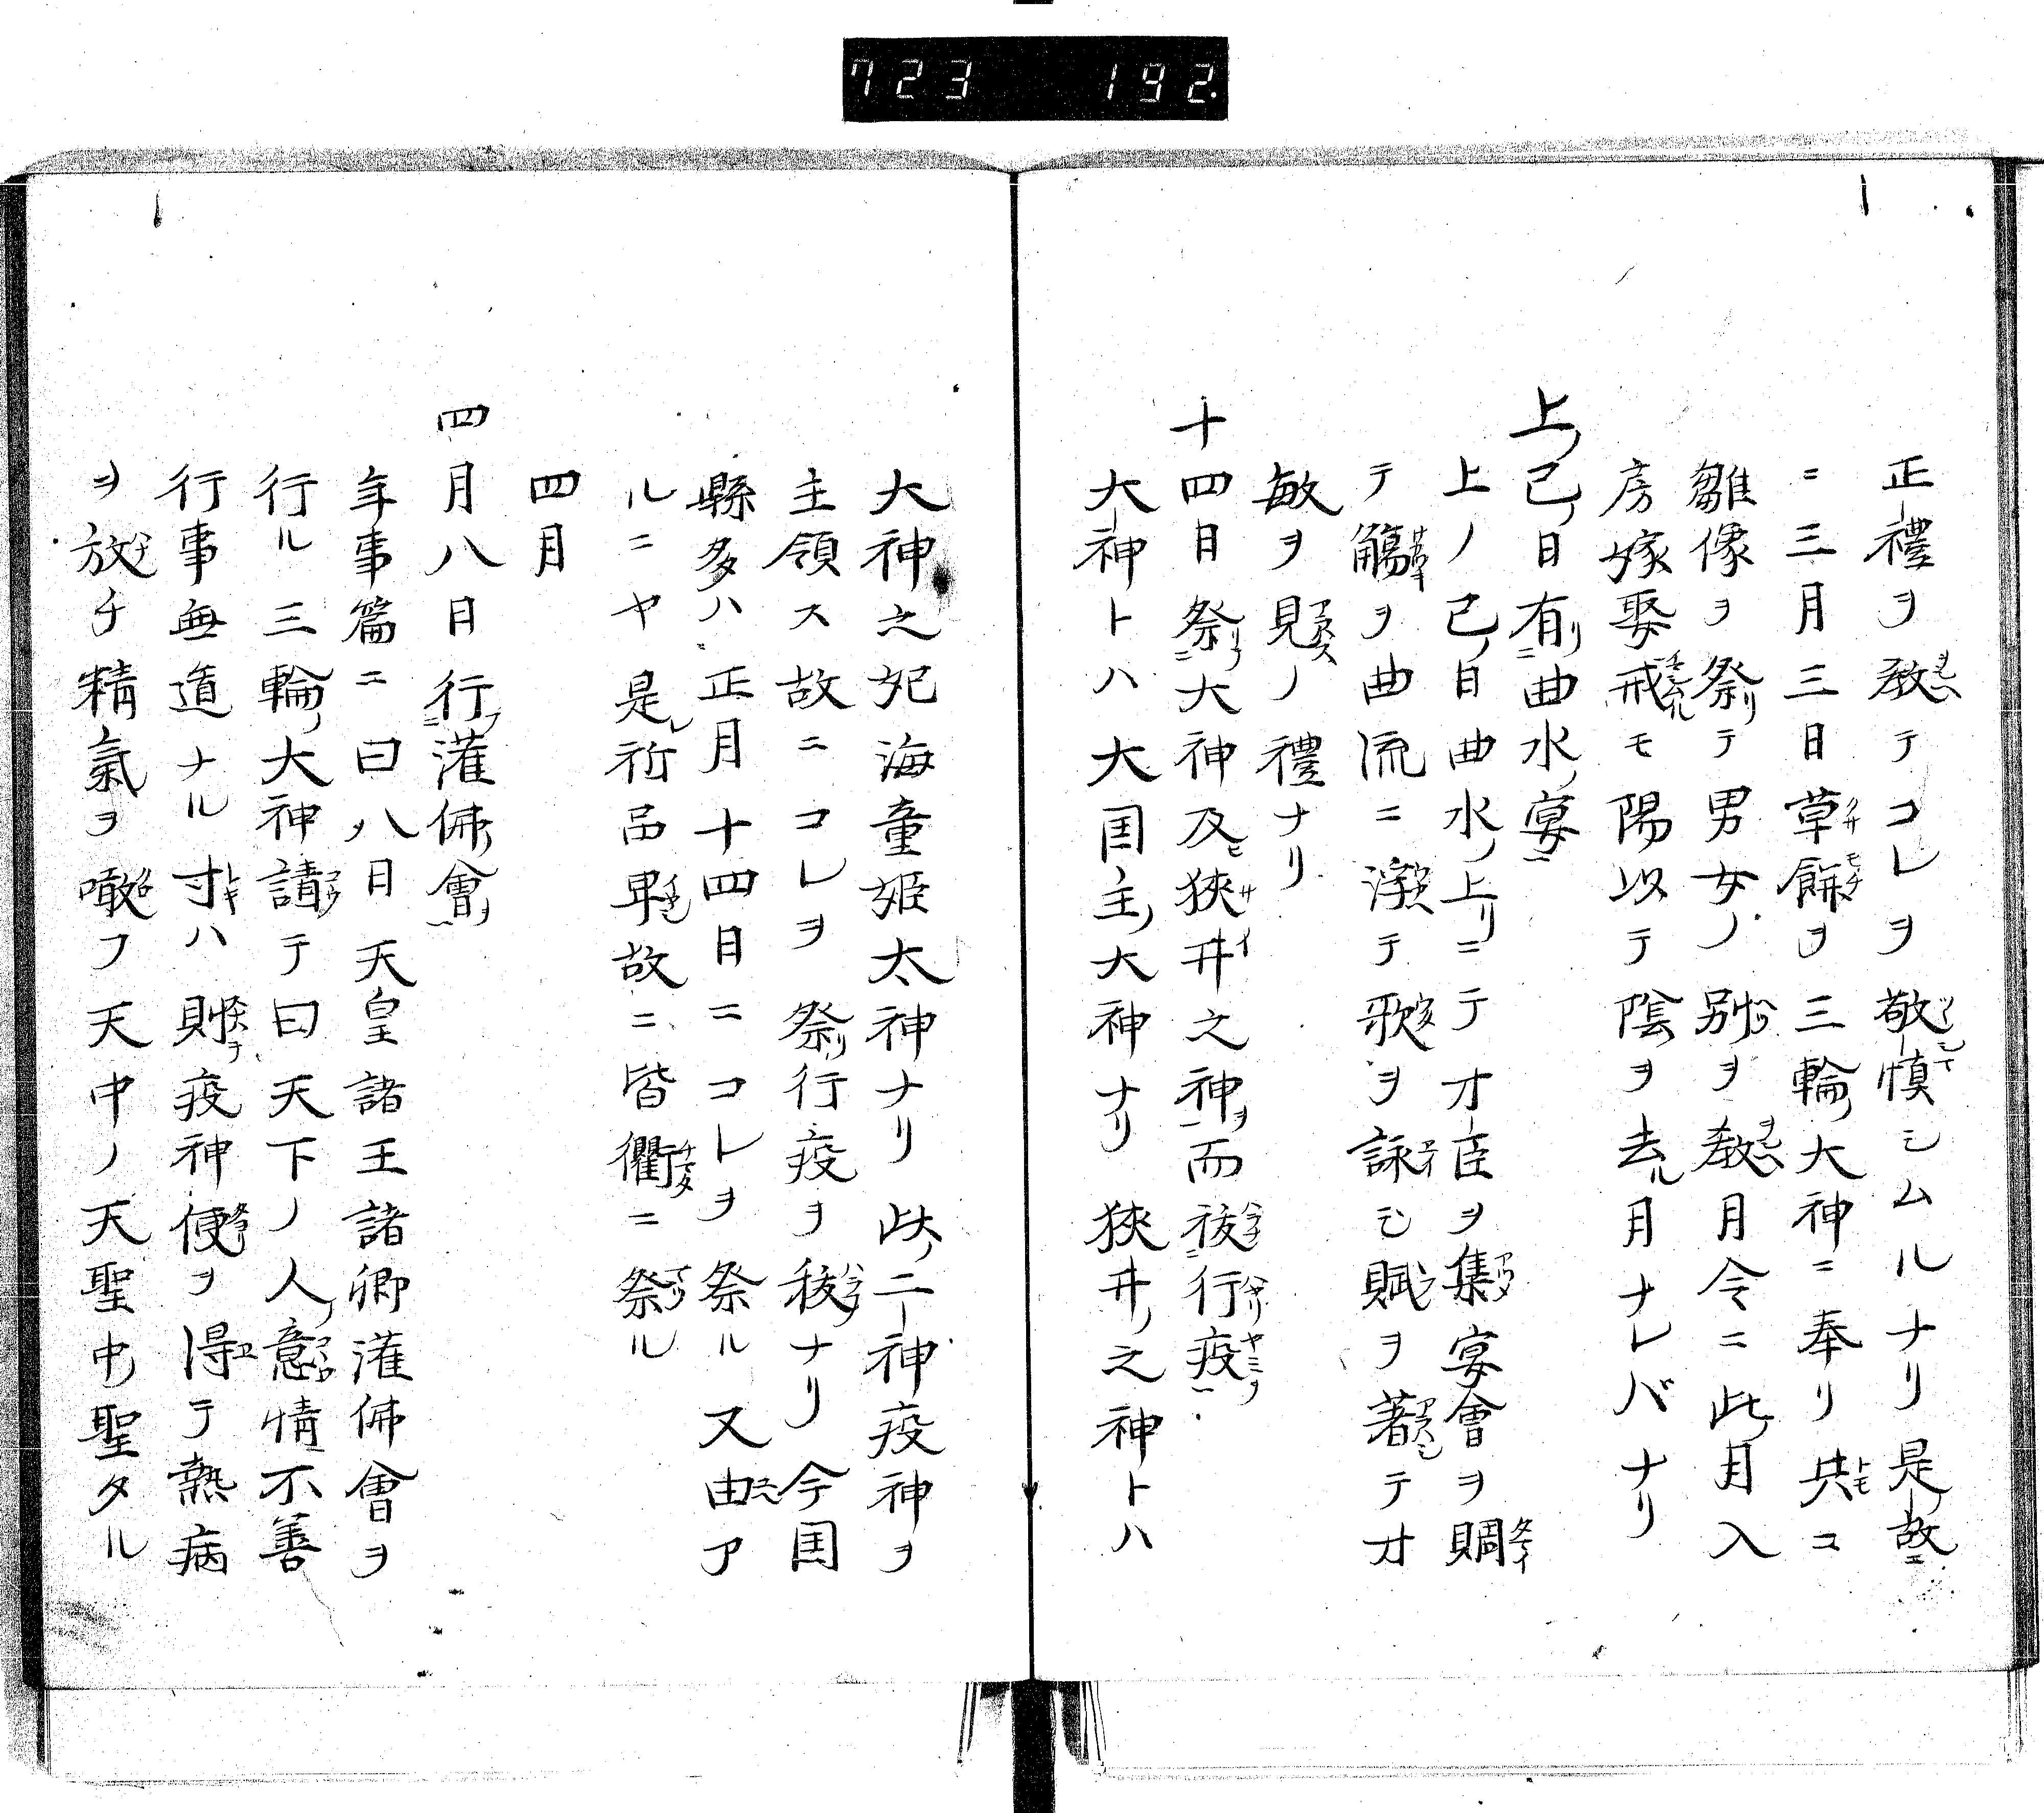 723 192.
正禮ヲ教テコレヲ敬慎シムルナリ是故ニ
ニ三月三日草餅ヲ三輪大神ニ奉リ共コ
雛像ヲ祭テ男女ノ別ヲ教月令ニ此月入
房嫁娶戒モ陽以テ陰ヲ去ル月ナレバナリ
上巳日有曲水宴
上ノ巳ノ日曲水ノ上リニテ才臣ヲ集宴會ヲ賙
テ觴ヲ曲流ニ浮テ歌ヲ詠シ賦ヲ著テ才
敏ヲ見ノ禮ナリ
十四日祭大神及狹井之神而祓行疫
大神トハ大国主大神ナリ狹井之神トハ
大神之妃海童姬太神ナリ此二神疫神ヲ
主領ス故ニコレヲ祭行疫ヲ祓ナリ今国
縣多ハ正月十四日ニコレヲ祭ル又由ア
ルニヤ是祈而耳故ニ皆衢ニ祭ル
四月
四月八日行灌佛會
年事篇ニ曰八日天皇諸王諸卿灌佛會ヲ
行ル三輪大神請テ曰天下ノ人意情不善
行事無道ナル寸ハ則疫神便ヲ得テ熱病
ヲ放チ精氣ヲ噉フ天中ノ天聖中聖タル